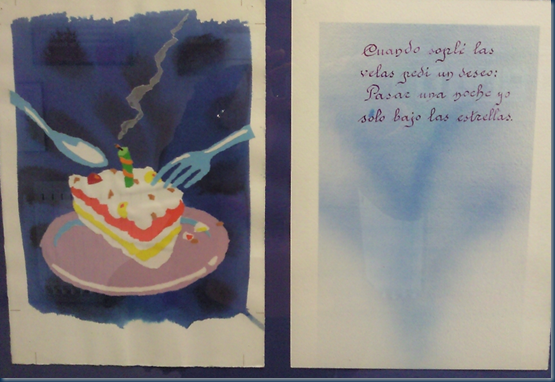 Cuando soplé las
velas pedi un deseo:
Pasar una noche yo
solo bajo las estrellas.